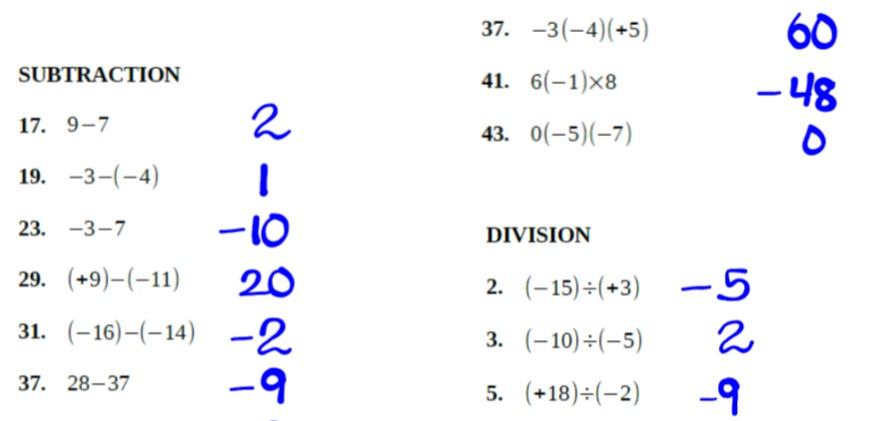 SUBTRACTION
17. 9−7 2
19. −3−(−4) 1
23. −3−7 −10
29. (+9)−(−11) 20
31. (−16)−(−14) −2
37. 28−37 −9
37. −3(−4)(+5) 60
41. 6(−1)×8 −48
43. 0(−5)(−7) 0
DIVISION
2. (−15)÷(+3) −5
3. (−10)÷(−5) 2
5. (+18)÷(−2) −9